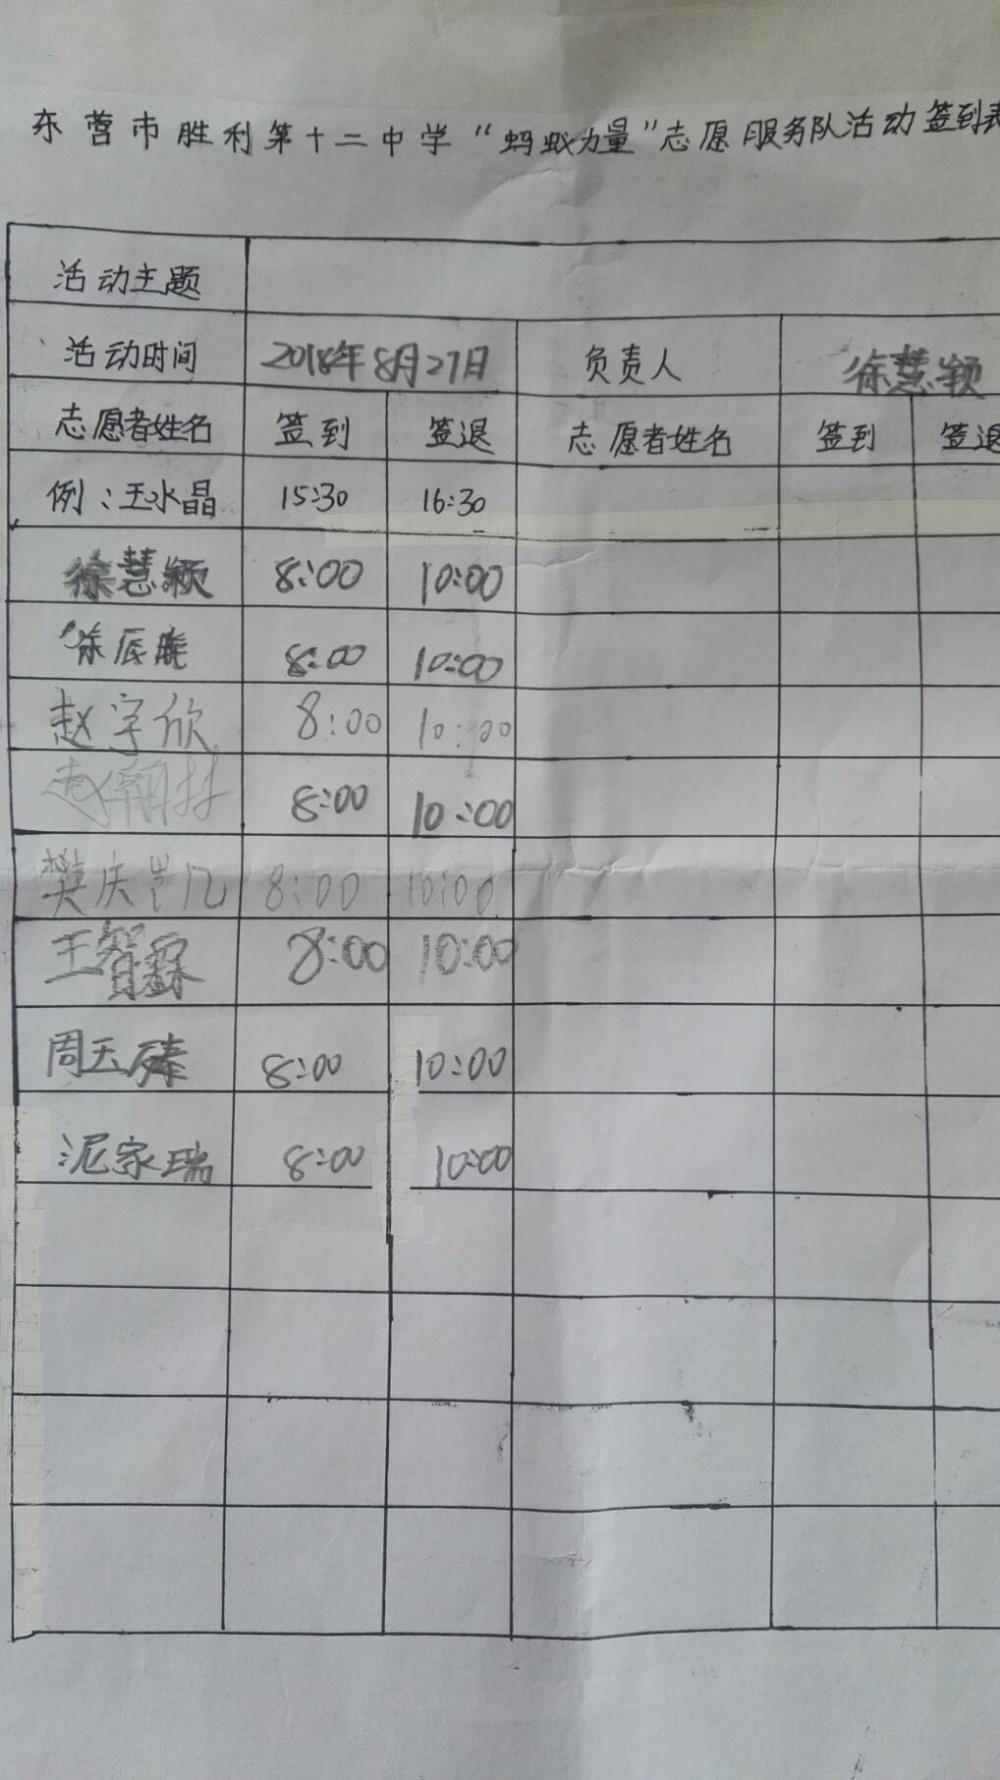 东营市胜利第十二中学“蚂蚁力量”志愿服务队活动签到表
活动主题
活动时间 2018年8月27日 负责人 徐慧颖
志愿者姓名 签到 签退 志愿者姓名 签到 签退
例：王水晶 15:30 16:30
徐慧颖 8:00 10:00
徐辰 8:00 10:00
赵宇欣 8:00 10:00
赵 8:00 10:00
樊庆岂凡 8:00 10:00
王智霖 8:00 10:00
周玉 8:00 10:00
泥家瑞 8:00 10:00